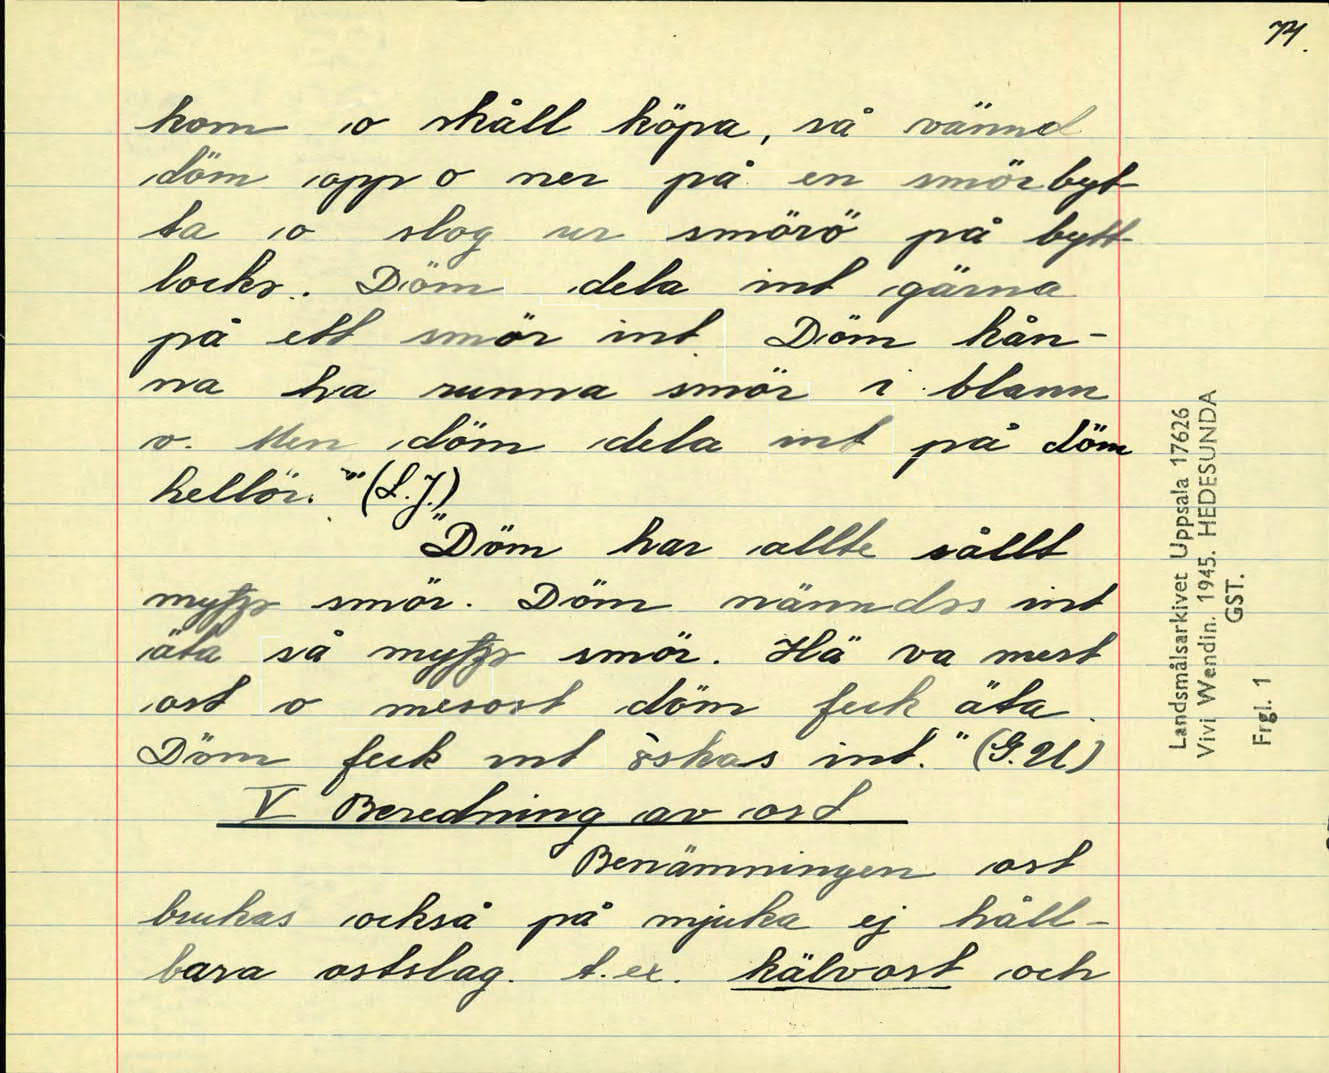 74.
kom o skåll köpa, så vännd
döm opp o ner på en smörbyt
ta o slog ur smörö på bytt
locks. Döm dela int gärna
på ett smör int Döm kån-
na ha runna smör i blann
o. Men döm dela int på döm
hellör." (L.J.)
"Döm har allte sållt
smör. Döm männdes int
äta så smör. Hä va mest
ost o mesost döm feck äta.
Döm feck int öskas int." (G.U)
V Beredning av ost
Benämningen ost
brukas också på mjuka ej håll-
bara ostslag. t.ex. kälvost och
Landsmålsarkivet Uppsala 17626
Vivi Wendin. 1945. HEDESUNDA
GST.
Frgl. 1